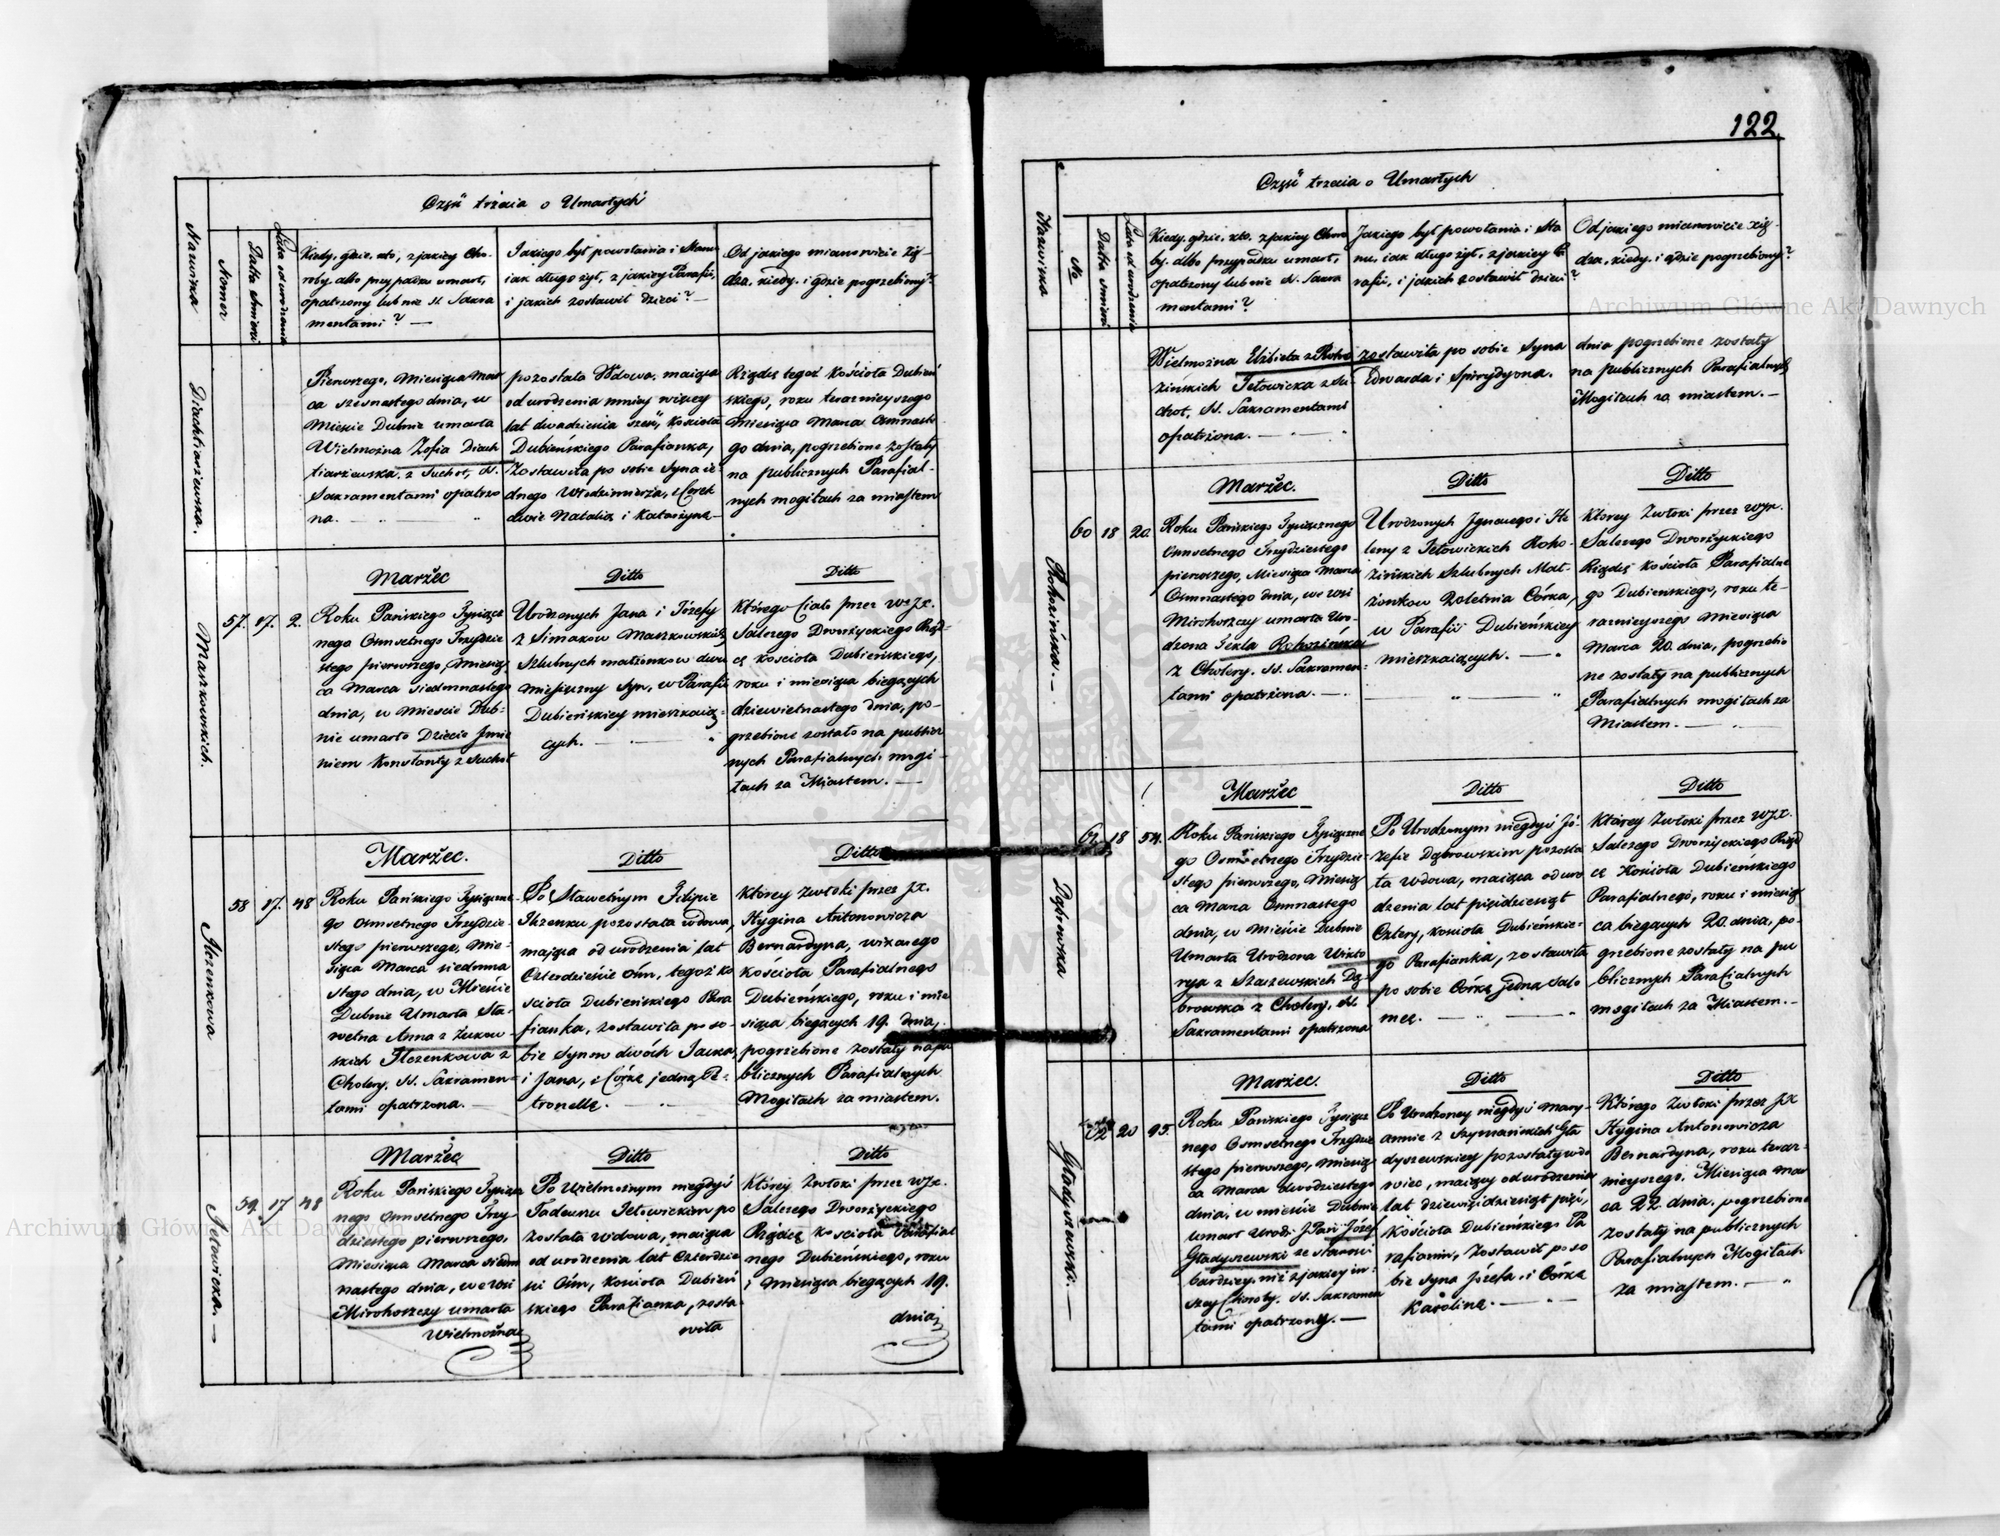 122
Część trzecia o Umarłych
Nazwiska
Numer
Datta śmierci
Lata od urodzenia
Kiedy, gdzie, kto, z jakiey Cho-
roby albo przypadku umarł,
opatrzony lub nie st. Sakra
mentami? —
Jakiego był powołania i Stanu
iak długo żył, z jakiey Parafii,
i jakich zostawił dzieci? —
Od jakiego mianowicie Xię-
dza, kiedy, i gdzie pogrzebiony? -
Diachtiarzewska.
Pierwszego, Miesiąca Mar
ca szesnastego dnia, w
Mieście Dubnie umarła
Wielmożna Zofia Diach
tiarzewska, z Suchot, SS.
Sakramentami opatrzo
na. —
pozostała Wdowa, maiąca
od urodzenia mniey więcey
lat dwadzieścia sześć, Kościoła
Dubieńskiego Parafianka,
Zostawiła po sobie Syna ie
dnego Włodzimierza, i Corek
dwie Natalią i Katarzynę —
Rządcę tegoż Kościoła Dubień
skiego, roku teraznieyszego
Miesiąca Marca Osmnaste
go dnia, pogrzebione zostały
na publicznych Parafial-
nych mogiłach za miastem
Maszkowskich.
57. 17. 2.
Marzec
Roku Pańskiego Tysiącz
nego Osmsetnego Trzydzie
stego pierwszego, Miesią
ca Marca siedmnastego
dnia, w Mieście Dub-
nie umarło Dziecie Jmie
niem Konstanty z Suchot
Ditto
Urodzonych Jana i Józefy
z Simakow Maszkowskich
Szlubnych małżonkow dwu
miesięczny Syn, w Parafii
Dubieńskiey mieszkaią-
cych. —
Ditto
Którego Ciało przez WJX.
Salezego Dworzyckiego Rząd-
cę Kościoła Dubieńskiego,
roku i miesiąca bieżących
dziewietnastego dnia, po-
grzebione zostało na publicz
nych Parafialnych mogi-
łach za Miastem. —
Ilczenkowa
58 17. 48
Marzec.
Roku Pańskiego Tysiączne
go Osmsetnego Trzydzie-
stego pierwszego, Mie-
siąca Marca siedmna
stego dnia, w Mieście
Dubnie Umarła Sła-
wetna Anna z Żukow-
skich Ilczenkowa z
Cholery, SS. Sakramen-
tami opatrzona. —
Ditto
Po Sławetnym Filipie
Ilczenku pozostała wdowa,
maiąca od urodzenia lat
Czterdzieście Ośm, tegoż Ko
ścioła Dubieńskiego Para
fianka, zostawiła po so-
bie Synow dwóch Jacka,
i Jana, i Córkę jedną Pe-
tronellę. —
Ditto
Którey Zwłoki przez JX.
Hygina Antonowicza
Bernardyna, wikarego
Kościoła Parafialnego
Dubieńskiego, roku i mie
siąca bieżących 19. dnia,
pogrzebione zostały na pu
blicznych Parafialnych
Mogiłach za miastem.
Jełowicka. —
59. 17 48
Marzec
Roku Pańskiego Tysiącz
nego Osmsetnego Trzy-
dziestego pierwszego,
Miesiąca Marca siedm
nastego dnia, we wsi
Mirohorszczy umarła
Wielmożna
Ditto
Po Wielmożnym niegdyś
Tadeuszu Jełowickim po
została wdowa, maiąca
od urodzenia lat Czterdzie
ści Ośm, Kościoła Dubień
skiego Parafianka, zosta
wiła
Ditto
Którey Zwłoki przez WJX.
Salezego Dworzyckiego
Rządcę Kościoła Parafial
nego Dubieńskiego, roku
i Miesiąca bieżących 19.
dnia
Część trzecia o Umarłych
Nazwiska
No
Datta śmierci
Lata od urodzenia
Kiedy, gdzie, kto, z jakiey Choro
by, albo przypadku umarł,
opatrzony lub nie st. Sakra
mentami?
Jakiego był powołania i Sta
nu, iak długo żył, z jakiey Pa
rafii, i jakich zostawił dzieci?
Od jakiego mianowicie Xię-
dza, kiedy, i gdzie pogrzebiony?
Wielmożna Elżbieta z Roho
zińskich Jełowicka z Su-
chot, SS. Sakramentami
opatrzona. —
zostawiła po sobie Syna
Edwarda i Spirydyona.
dnia pogrzebione zostały
na publicznych Parafialnych
Mogiłach za miastem. —
Rohozińska. —
60 18 20.
Marzec.
Roku Pańskiego Tysiącznego
Osmsetnego Trzydziestego
pierwszego, Miesiąca Marca
Osmnastego dnia, we wsi
Mirohorszczy umarła Uro-
dzona Tekla Rohozińska
z Cholery, SS. Sakramen-
tami opatrzona. —
Ditto
Urodzonych Jgnacego i He
leny z Jełowickich Roho-
zińskich Szlubnych Mał-
żonkow 20letnia Córka,
w Parafii Dubieńskiey
mieszkaiących. —
Ditto
Którey Zwłoki przez WJX.
Salezego Dworzyckiego
Rządcę Kościoła Parafialne
go Dubienskiego, roku te-
raznieyszego Miesiąca
Marca 20. dnia, pogrzebio
ne zostały na publicznych
Parafialnych mogiłach za
Miastem. —
Dąbrowska
61. 18 54.
Marzec
Roku Pańskiego Tysiączne
go Osmsetnego Trzydzie-
stego pierwszego, Miesią
ca Marca Osmnastego
dnia, w Mieście Dubnie
Umarła Urodzona Wikto
rya z Szaszewskich Dą-
browska z Cholery, SS.
Sakramentami opatrzona
Ditto
Po Urodzonym niegdyś Jó-
zefie Dąbrowskim pozosta
ła wdowa, maiąca od uro
dzenia lat pięćdziesiąt
Cztery, Kościoła Dubieńskie-
go Parafianka, zostawiła
po sobie Córkę jedną Salo
meę. —
Ditto
Którey Zwłoki przez WJX.
Salezego Dworzyckiego Rząd
cę Kościoła Dubieńskiego
Parafialnego, roku i miesią
ca bieżących 20. dnia, po-
grzebione zostały na pu
blicznych Parafialnych
mogiłach za Miastem. —
Gładyszewski. —
62 20 95.
Marzec.
Roku Pańskiego Tysiącz
nego Osmsetnego Trzydzie
stego pierwszego, Miesią
ca Marca dwudziestego
dnia, w mieście Dubnie
umarł Urodz: J Pan Józef
Gładyszewski ze starości
bardziey, niż z jakiey in-
szey Choroby, SS. Sakramen
tami opatrzony. —
Ditto
Po Urodzoney niegdyś Mary-
annie z Szymańskich Gła
dyszewskiey pozostały wdo
wiec, maiący od urodzenia
lat dziewięćdziesiąt pięć,
Kościoła Dubieńskiego Pa
rafianin, Zostawił po so
bie Syna Józefa, i Córkę
Karolinę. —
Ditto
Którego Zwłoki przez JX
Hygina Antonowicza
Bernardyna, roku teraz-
nieyszego, Miesiąca Mar
ca 22. dnia, pogrzebione
zostały na publicznych
Parafialnych Mogiłach
za miastem. —
Archiwum Główne Akt Dawnych
Archiwum Główne Akt Dawnych